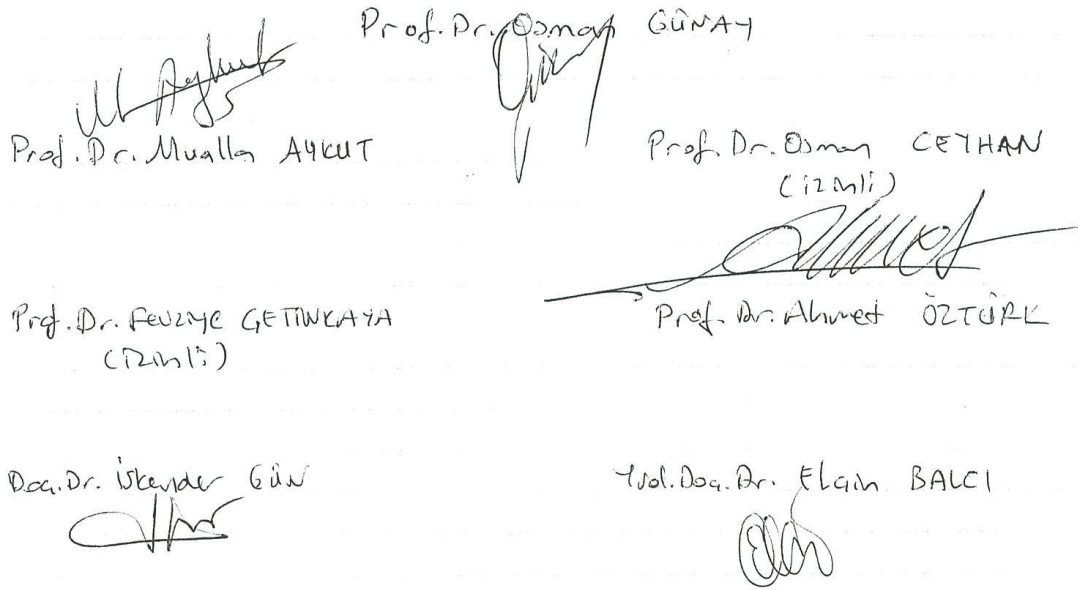 Prof. Dr. Osman GÜNAY
Prof. Dr. Mualla AYKUT
Prof. Dr. Osman CEYHAN
(izinli)
Prof. Dr. Fevziye ÇETİNKAYA
(izinli)
Prof. Dr. Ahmet ÖZTÜRK
Doç. Dr. İskender GÜN
Yrd. Doç. Dr. Elçin BALCI